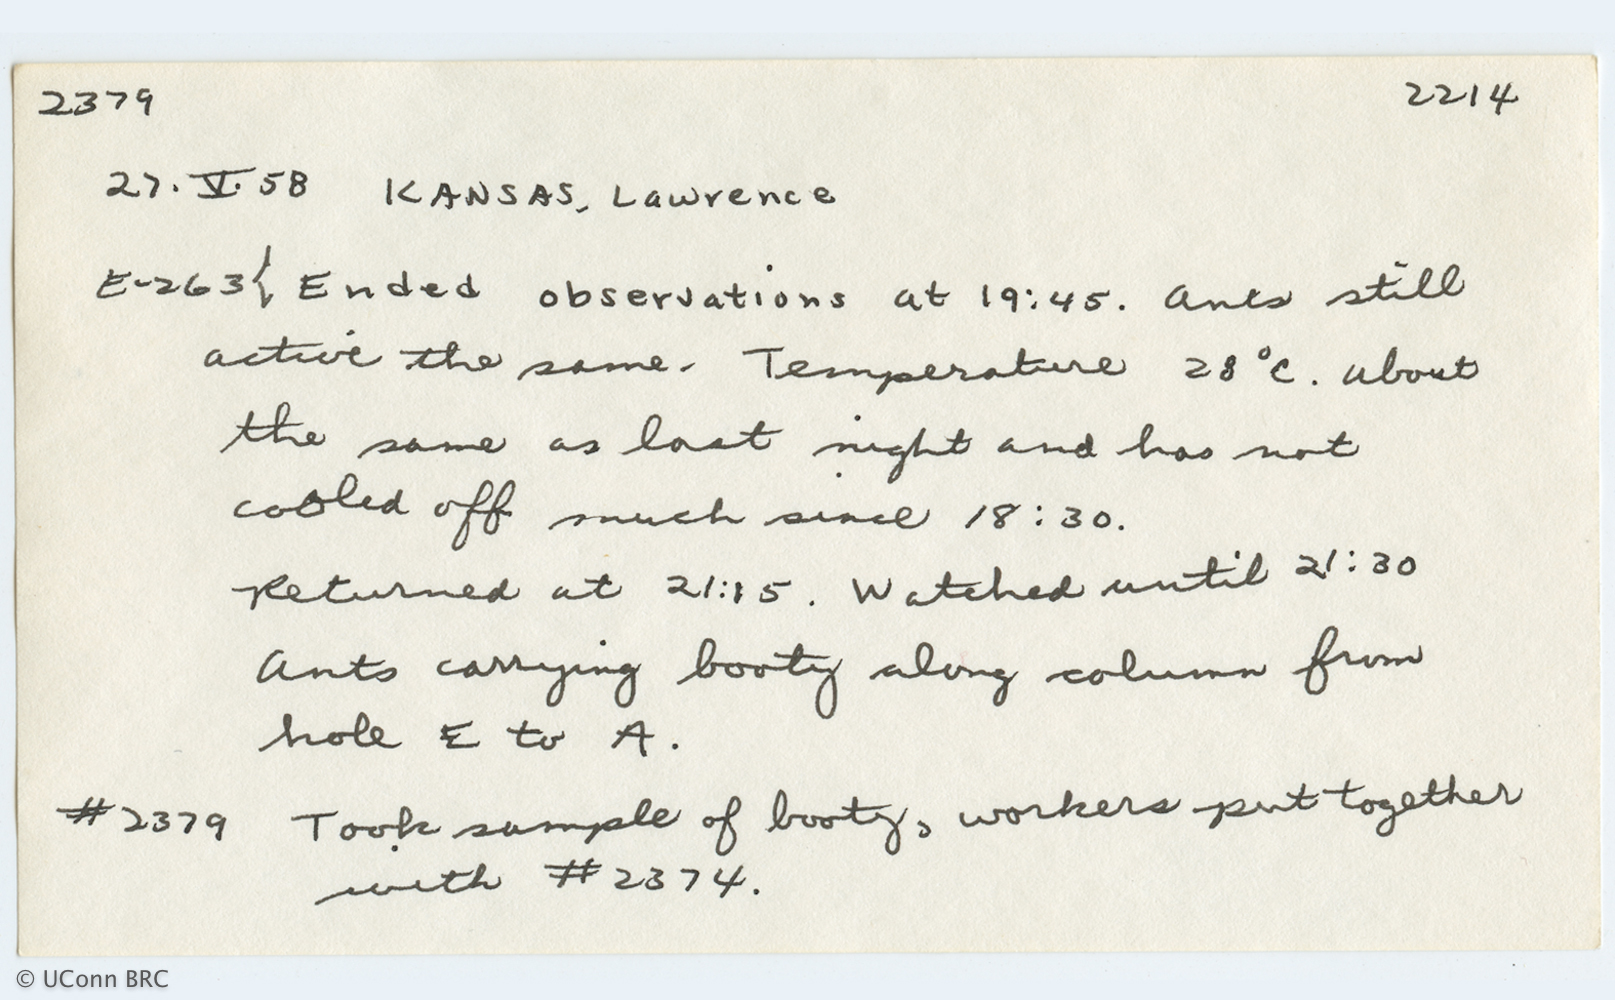 2379 2214
27.V.58 KANSAS, Lawrence
E-263{ Ended observations at 19:45. Ants still
active the same. Temperature 28°C. about
the same as last night and has not
cooled off much since 18:30.
Returned at 21:15. Watched until 21:30
Ants carrying booty along column from
hole E to A.
#2379 Took sample of booty, workers put together
with #2374.
© UConn BRC